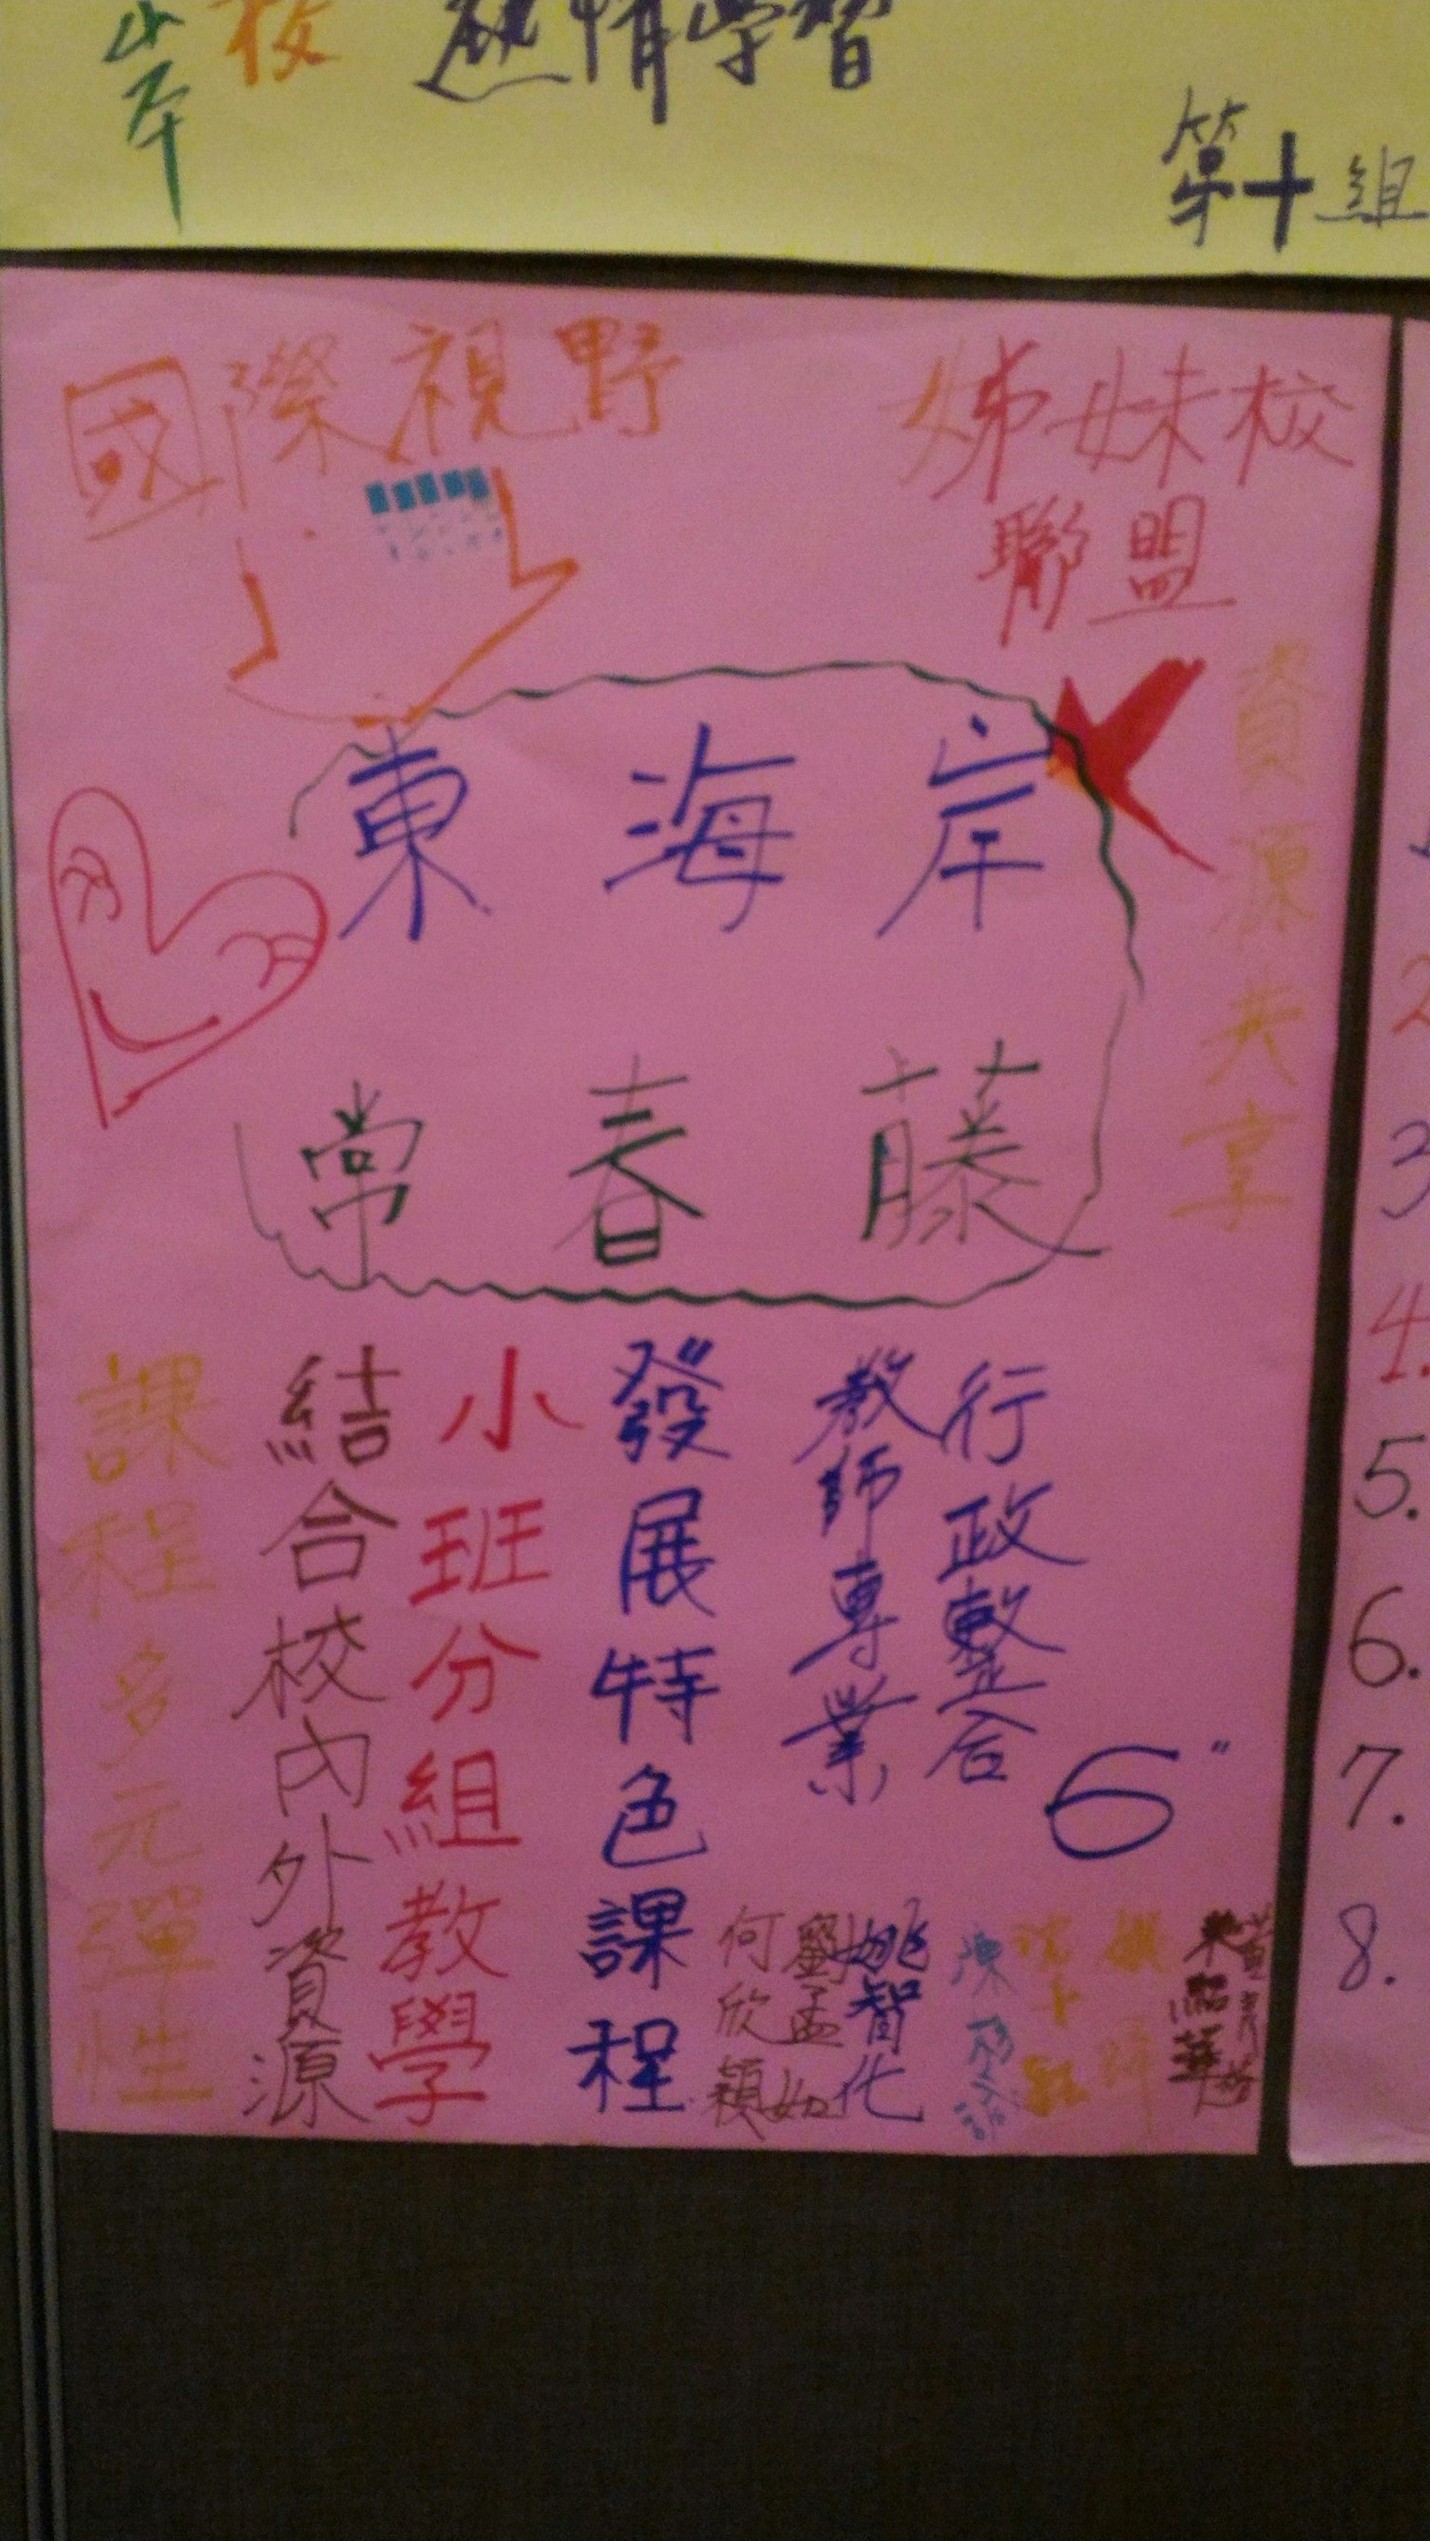 岸
校
熱情學習
第十組
國際視野
姊妹校
聯盟
資源共享
東海岸
常春藤
行政整合
教師專業
發展特色課程
小班分組教學
結合校內外資源
課程多元彈性
6"
姚智化
劉孟如
何欣穎
2
3
4.
5.
6.
7.
8.